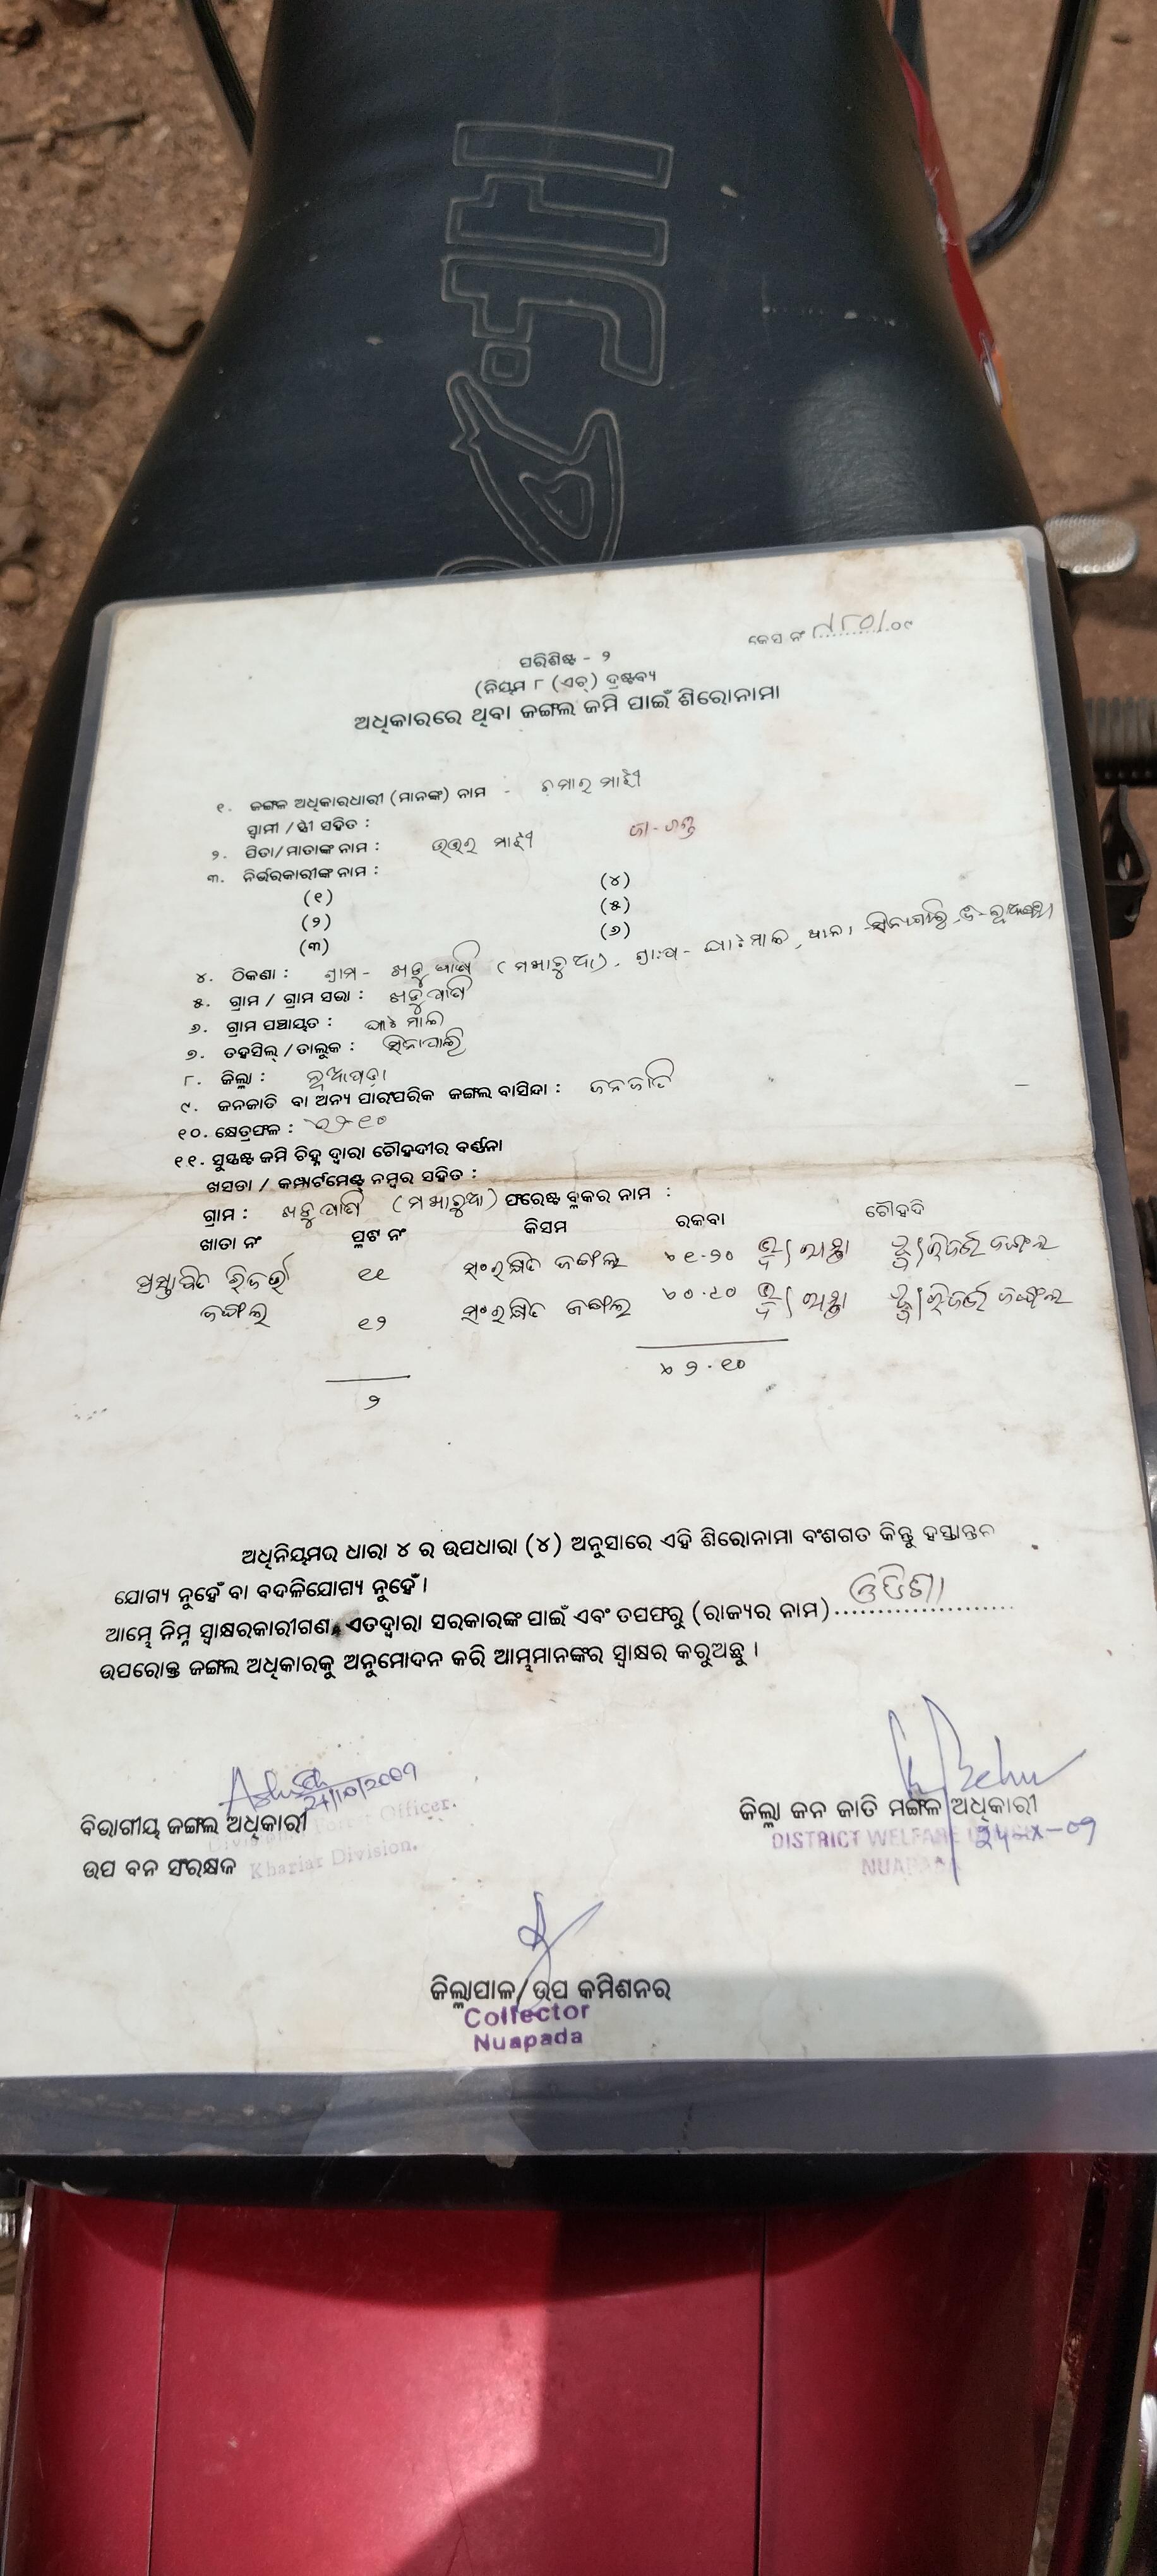 କେସ ନଂ ୮/୮୦/୦୯
ପରିଶିଷ୍ଟ - ୨
(ନିୟମ ୮ (ଏଚ୍) ଦ୍ରଷ୍ଟବ୍ୟ
ଅଧିକାରରେ ଥିବା ଜଙ୍ଗଲ ଜମି ପାଇଁ ଶିରୋନାମା
୧. ଜଙ୍ଗଳ ଅଧିକାରଧାରୀ (ମାନଙ୍କ) ନାମ - ଚମାର ମାଝୀ
ସ୍ୱାମୀ / ସ୍ତ୍ରୀ ସହିତ :
୨. ପିତା/ମାତାଙ୍କ ନାମ : ଉଦ୍ଧର ମାଝୀ ଜା-ଗଣ୍ଡ
୩. ନିର୍ଭରକାରୀଙ୍କ ନାମ :
(୧) (୪)
(୨) (୫)
(୩) (୬)
୪. ଠିକଣା : ଗ୍ରାମ - (ମଖାରୁଆ), ଗ୍ରା:ପ - ଘା:ମାଳ, ଥାନା ସିନାପାଲି, ଜି-ନୂଆପଡ଼ା
୫. ଗ୍ରାମ / ଗ୍ରାମ ସଭା :
୬. ଗ୍ରାମ ପଞ୍ଚାୟତ : ଘା: ମାଳ
୭. ତହସିଲ୍ / ତାଲୁକ : ସିନାପାଲି
୮. ଜିଲ୍ଲା : ନୂଆପଡ଼ା
୯. ଜନଜାତି ବା ଅନ୍ୟ ପାରଂପରିକ ଜଙ୍ଗଲ ବାସିନ୍ଦା : ଜନଜାତି
୧୦. କ୍ଷେତ୍ରଫଳ : ୨-୧୦
୧୧. ସୁସ୍ପଷ୍ଟ ଜମି ଚିହ୍ନ ଦ୍ୱାରା ଚୌହଦୀର ବର୍ଣ୍ଣନା
ଖସଡା / କମ୍ପାର୍ଟମେଣ୍ଟ୍ ନମ୍ବର ସହିତ :
ଗ୍ରାମ : (ମଖାରୁଆ) ଫରେଷ୍ଟ ବ୍ଲକର ନାମ :
ଖାତା ନଂ ପ୍ଲଟ ନଂ କିସମ ରକବା ଚୌହଦି
ପ୍ରସ୍ତାବିତ ରିଜର୍ଭ ୧୧ ସଂରକ୍ଷିତ ଜଙ୍ଗଲ ୧-୨୦ ରାସ୍ତା ରିଜର୍ଭ ଜଙ୍ଗଲ
ଜଙ୍ଗଲ ୧୨ ସଂରକ୍ଷିତ ଜଙ୍ଗଲ ୦.୯୦ ରାସ୍ତା ରିଜର୍ଭ ଜଙ୍ଗଲ
୨ ୨.୧୦
ଅଧିନିୟମର ଧାରା ୪ ର ଉପଧାରା (୪) ଅନୁସାରେ ଏହି ଶିରୋନାମା ବଂଶଗତ କିନ୍ତୁ ହସ୍ତାନ୍ତର
ଯୋଗ୍ୟ ନୁହେଁ ବା ବଦଳିଯୋଗ୍ୟ ନୁହେଁ ।
ଆମ୍ଭେ ନିମ୍ନ ସ୍ୱାକ୍ଷରକାରୀଗଣ, ଏତଦ୍ୱାରା ସରକାରଙ୍କ ପାଇଁ ଏବଂ ତପଫରୁ (ରାଜ୍ୟର ନାମ) ଓଡିଶା
ଉପରୋକ୍ତ ଜଙ୍ଗଲ ଅଧିକାରକୁ ଅନୁମୋଦନ କରି ଆମ୍ଭମାନଙ୍କର ସ୍ୱାକ୍ଷର କରୁଅଛୁ ।
ବିଭାଗୀୟ ଜଙ୍ଗଲ ଅଧିକାରୀ
Divisional Forest Officer.
ଉପ ବନ ସଂରକ୍ଷକ
Khariar Division.
ଜିଲ୍ଲା ଜନ ଜାତି ମଙ୍ଗଳ ଅଧିକାରୀ
DISTRICT WELFARE
NUAPADA
ଜିଲ୍ଲାପାଳ/ଉପ କମିଶନର
Collector
Nuapada